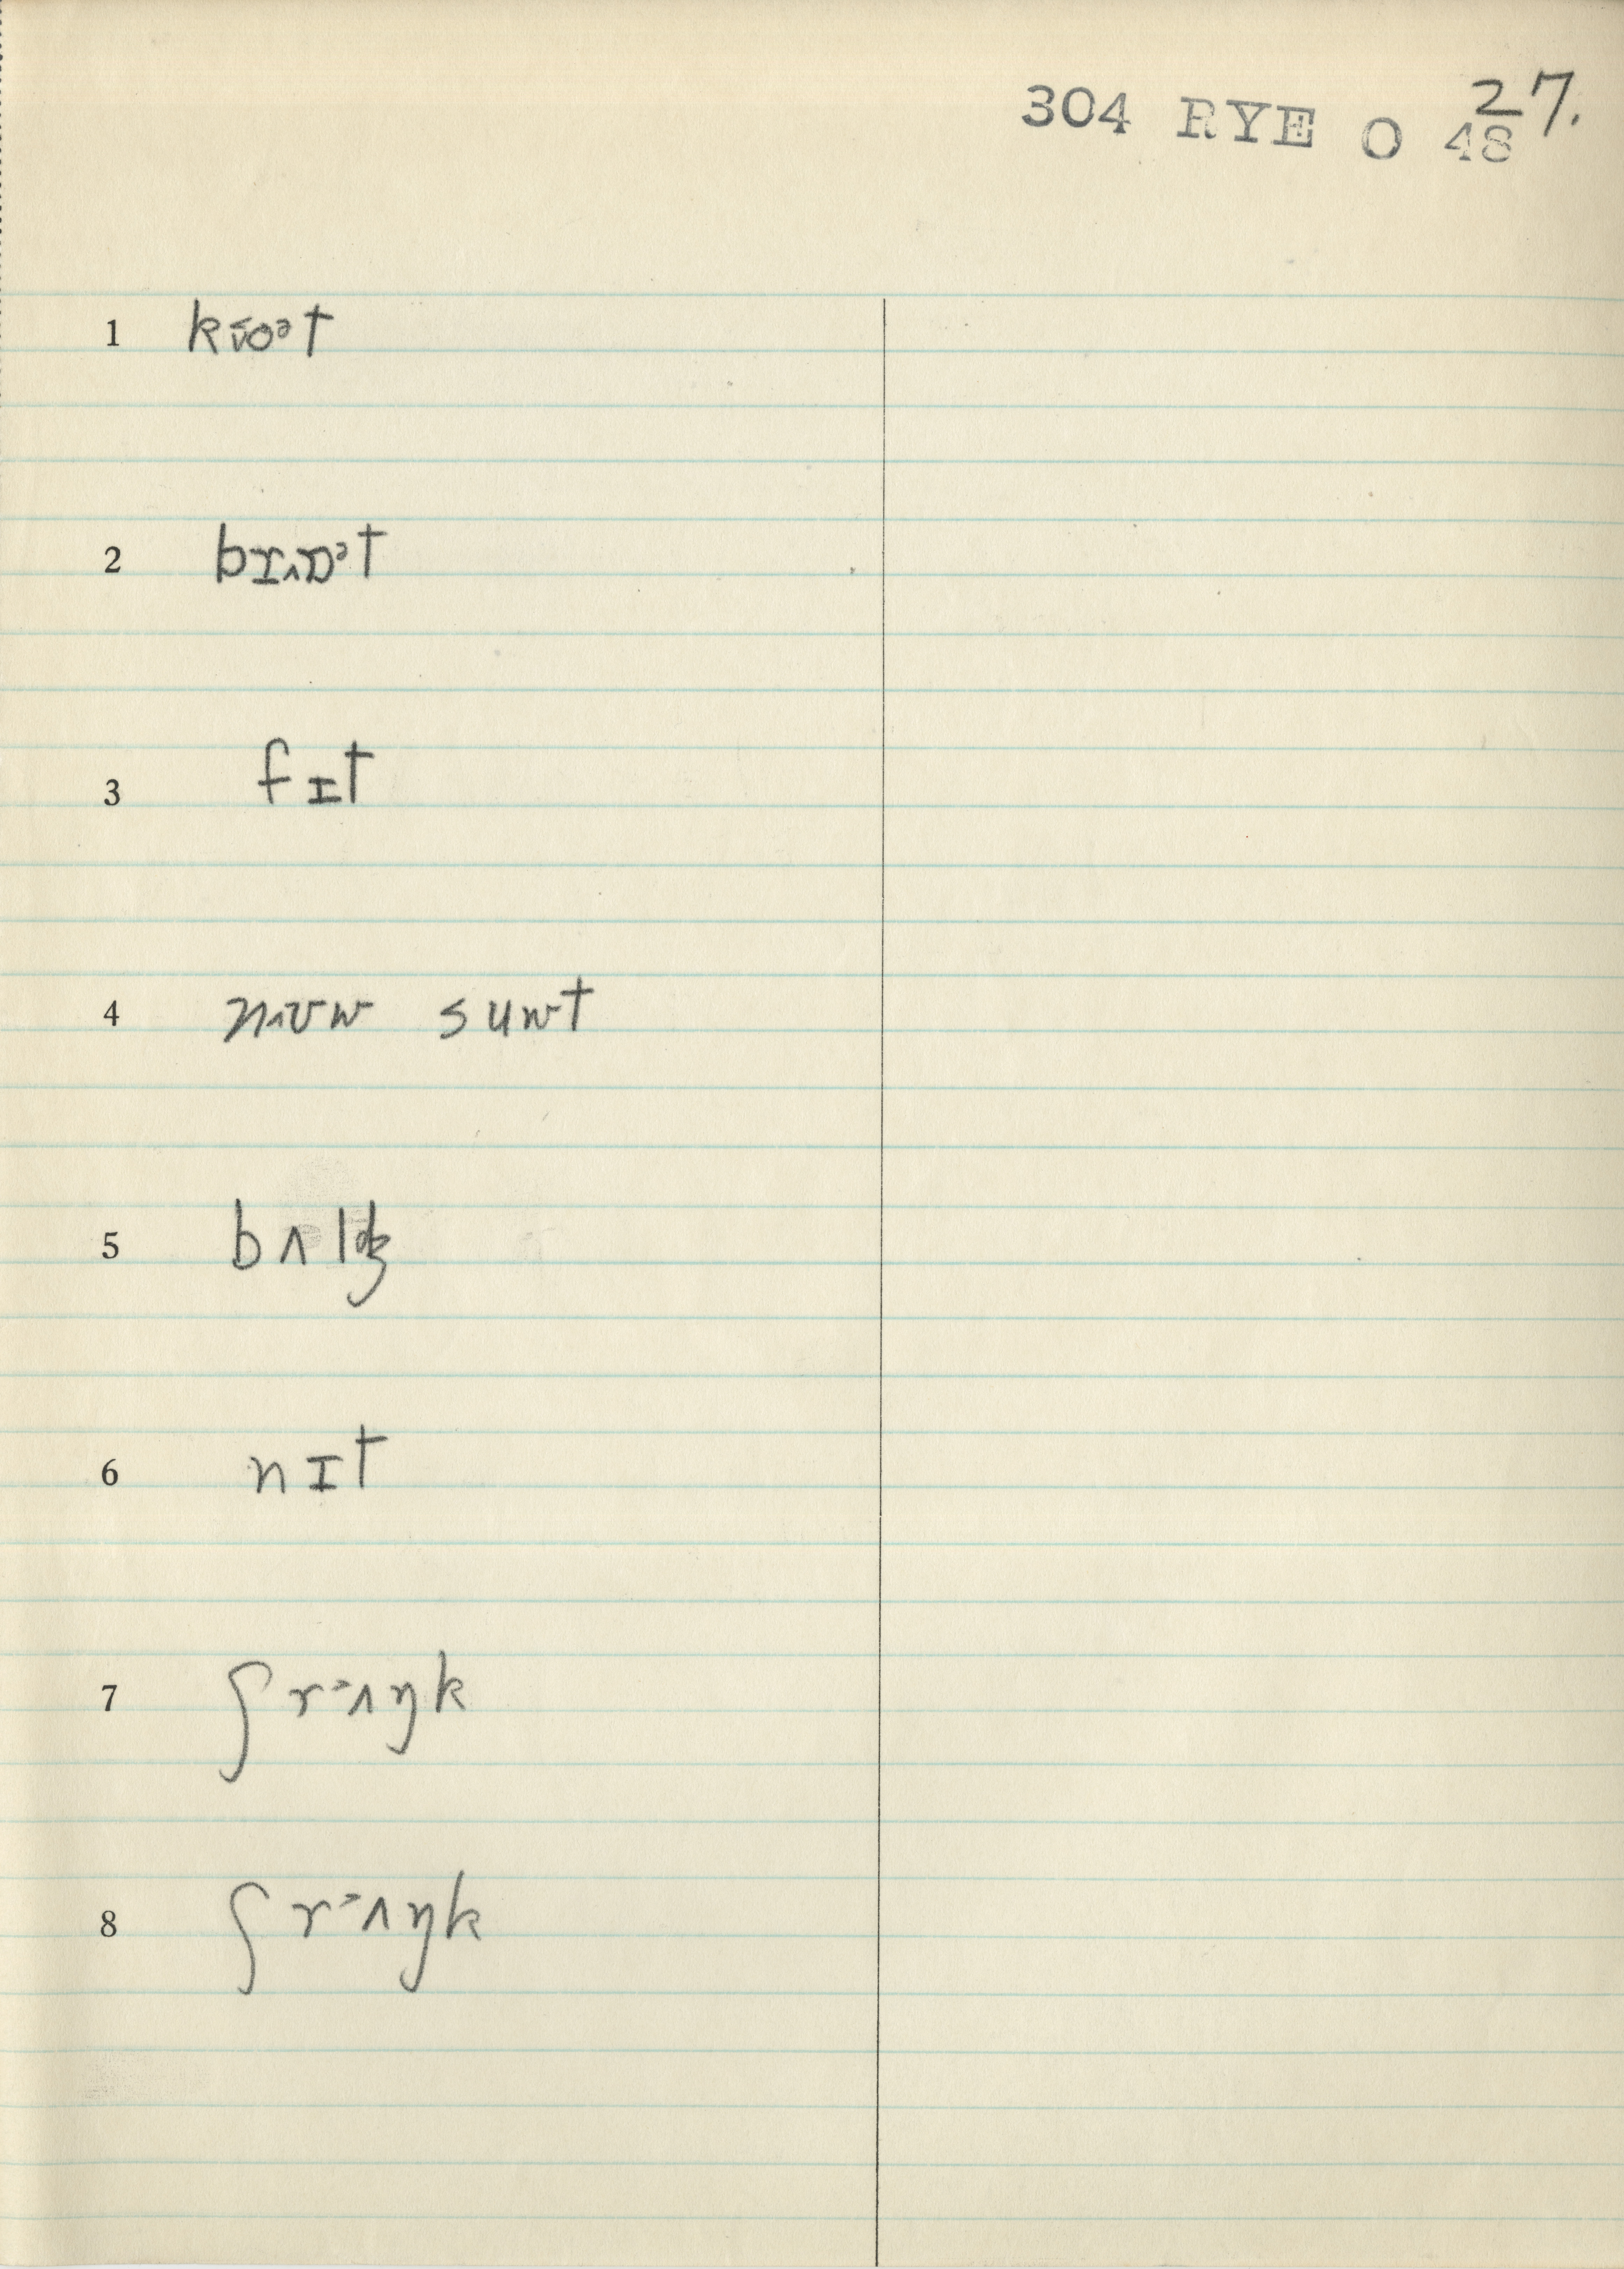 304 RYE O 48
27.
1 kɪ̆oᵊt
2 bɪ‸ɒᵊt
3 fɪt
4 n‸ʊw suwt
5 bʌlʤ
6 nɪt
7 ʃrᵊʌŋk
8 ʃrᵊʌŋk